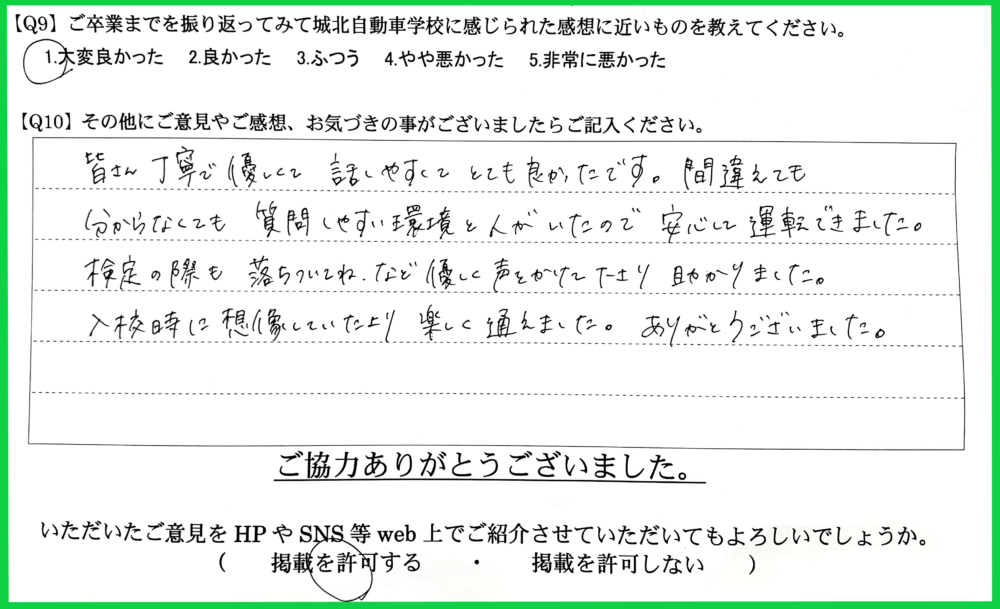 【Q9】ご卒業までを振り返ってみて城北自動車学校に感じられた感想に近いものを教えてください。
1.大変良かった 2.良かった 3.ふつう 4.やや悪かった 5.非常に悪かった
【Q10】その他にご意見やご感想、お気づきの事がございましたらご記入ください。
皆さん丁寧で優しくて 話しやすくて とても良かったです。間違えても
分からなくても 質問しやすい環境と人がいたので 安心して運転できました。
検定の際も 落ちついてね、など優しく声をかけて下さり 助かりました。
入校時に想像していたより 楽しく通えました。 ありがとうございました。
ご協力ありがとうございました。
いただいたご意見をHPやSNS等web上でご紹介させていただいてもよろしいでしょうか。
( 掲載を許可する ・ 掲載を許可しない )